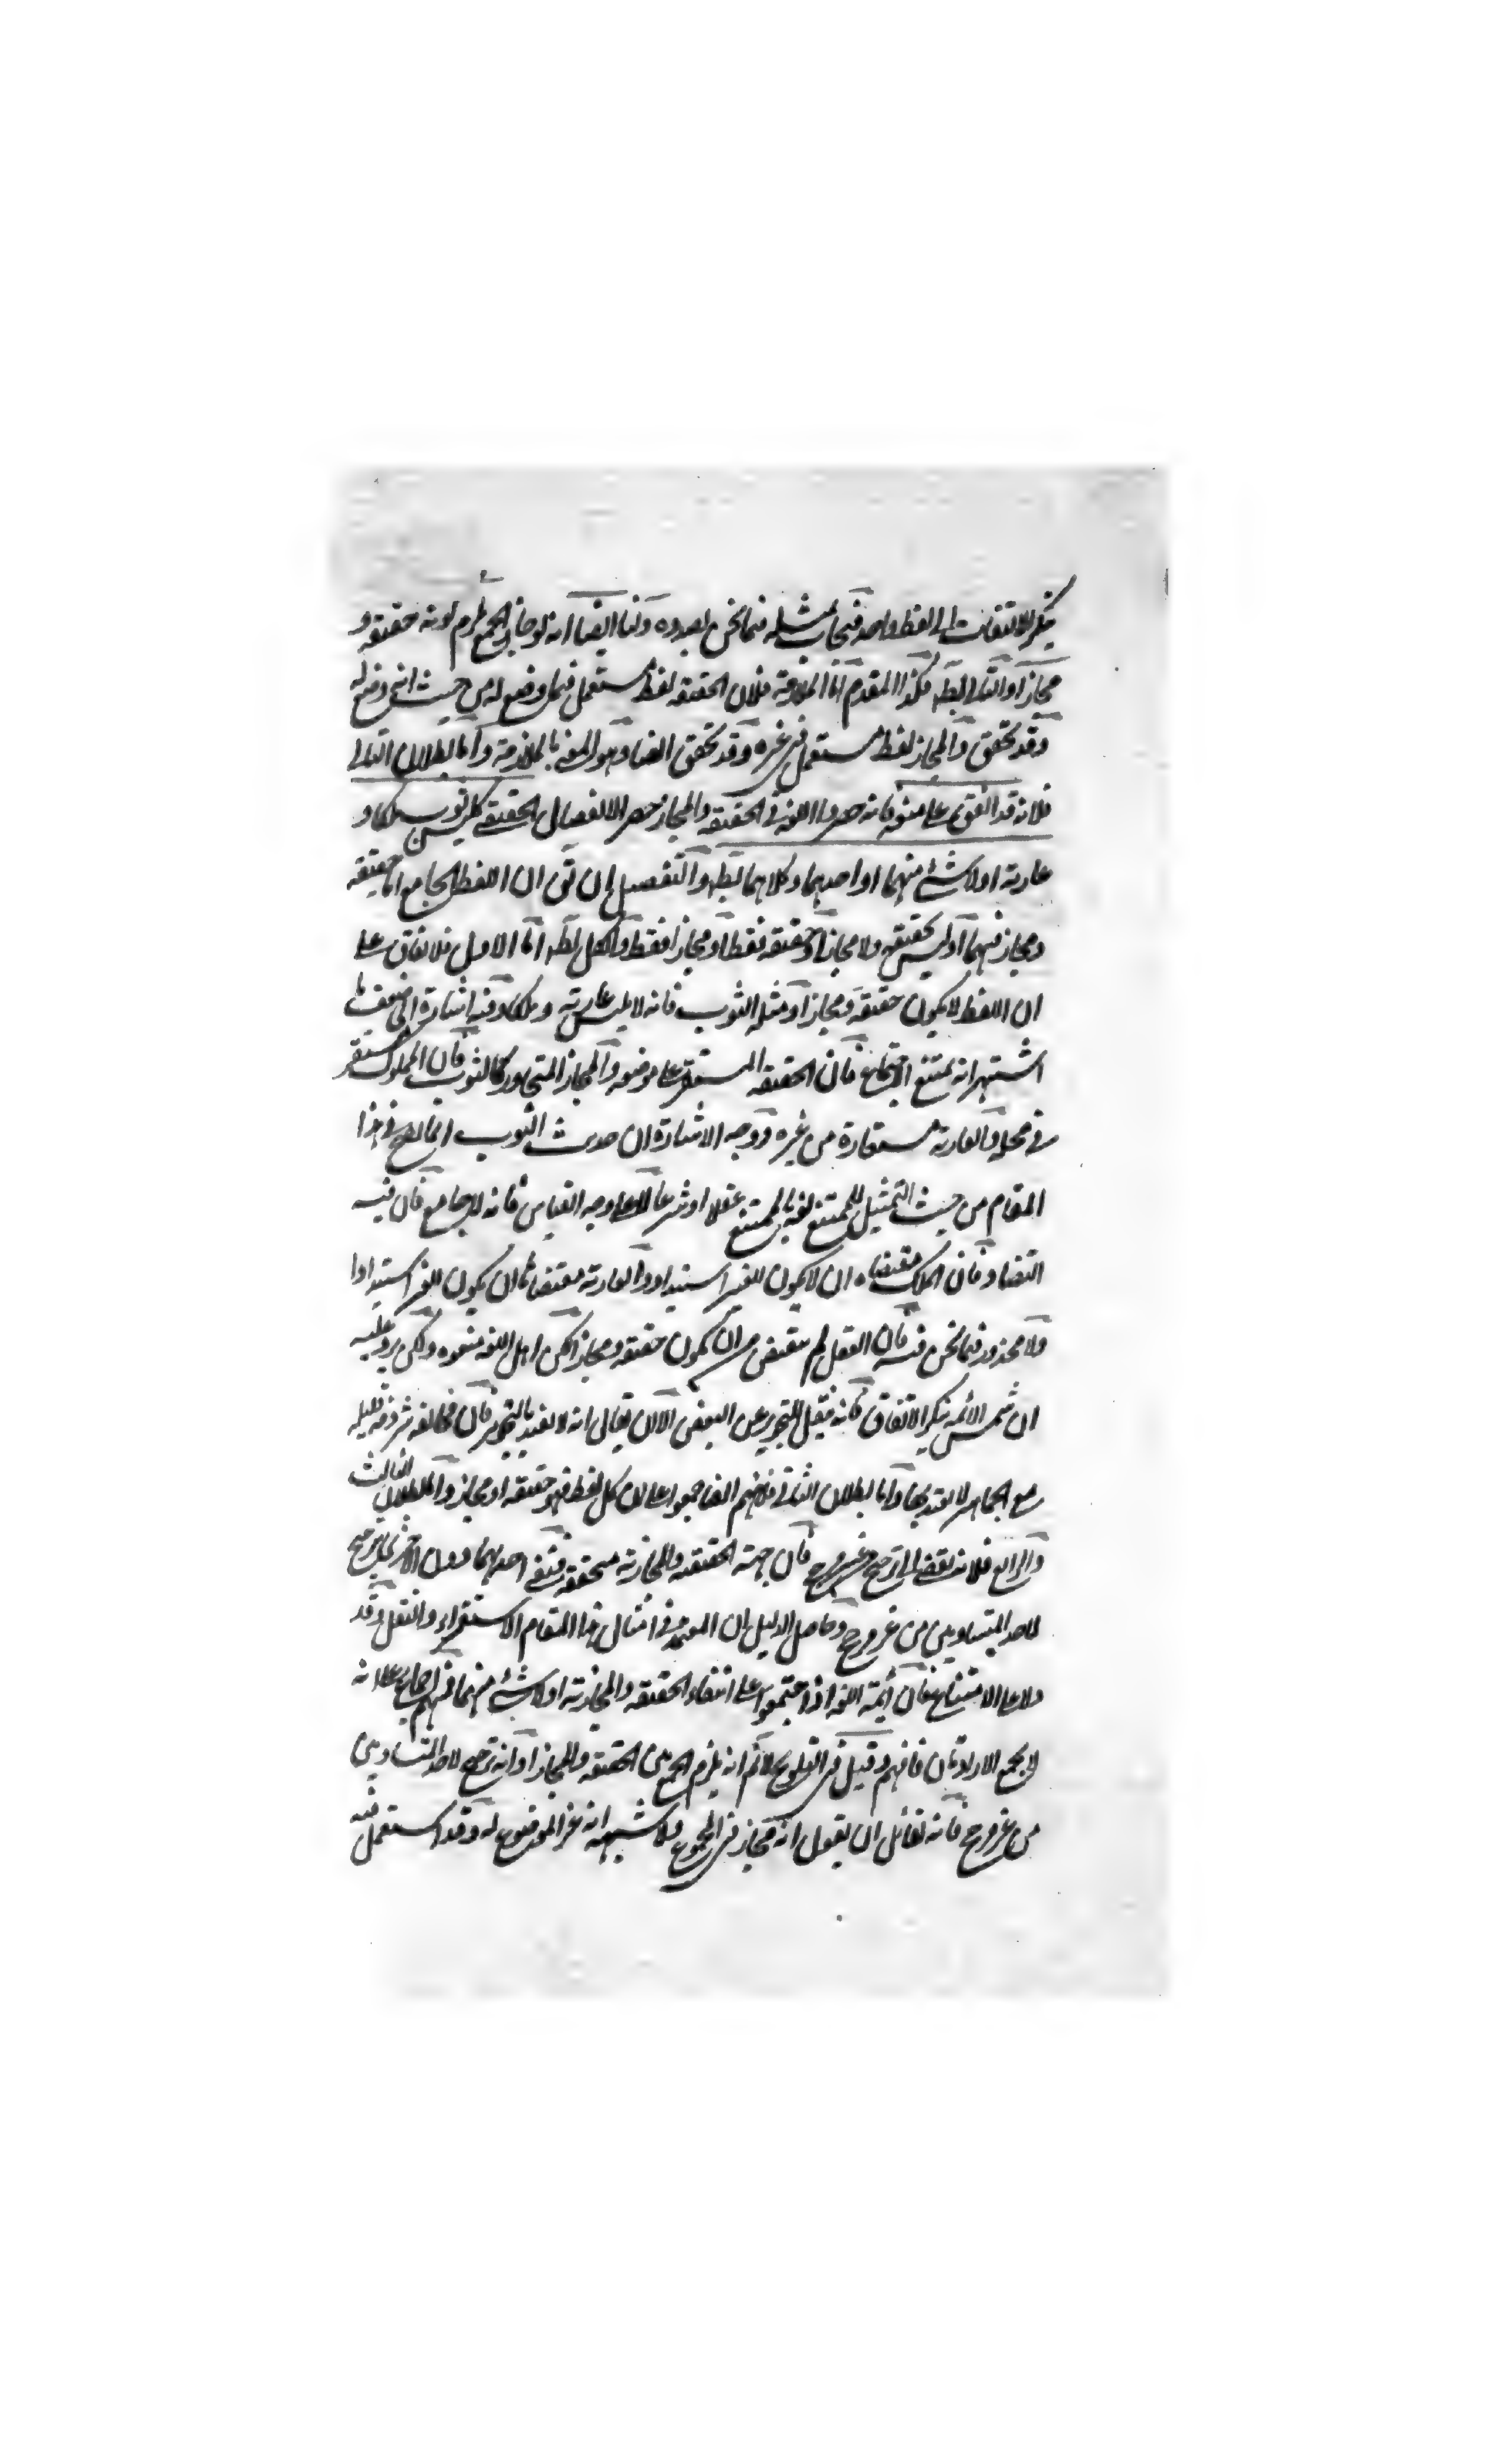 ينكر الالتفات الى لفظ واحد فيجاب بمثله فيما نحن بصدده ولنا ايضا انه لو جاز الجمع لزم كونه حقيقة و
مجازا والتالي بط فكذا المقدم اما الملازمة فلان الحقيقة لفظ مستعمل فيما وضع له من حيث انه وضع له
وقد تحقق والمجاز لفظ مستعمل في غيره وقد تحقق ايضا وهو المعني بالملازمة واما بطلان التالي
فلانه قد اتفق على منعه فانه حصروا اللفظ في الحقيقة والمجاز حصر الانفصال الحقيقي كلبس ثوب ملكا و
عارية او لا شئ منهما او احدهما وكلاهما بط والتفصيل ان يق ان اللفظ الجامع اما حقيقة
ومجاز فيهما او ليس بحقيقة ولا مجاز او حقيقة فقط او مجاز فقط والكل بط اما الاول فلاتفاق على
ان اللفظ لا يكون حقيقة ومجازا ومثله الثوب فانه لا يلبس عارية وملكا وفيه اشارة الى ضعف ما
اشتهر انه يمتنع الاجتماع فان الحقيقة المستقر على موضعه والمجاز المتجاوز كالثوب فان المملوك مستقر
في محله والعارية مستعارة من غيره ووجه الاشارة ان حديث الثوب انما يصلح في هذا
المقام من حيث التمثيل للممتنع لغة بالممتنع عقلا او شرعا لا على وجه القياس فانه لا جامع فان فيه
التضاد فان الملك مقتضاه ان لا يكون للغير استرداد والعارية مقتضاها ان يكون للغير استردادا
ولا محذور فيما نحن فيه فان العقل لم يتقبض من ان يكون حقيقة ومجازا لكن اهل اللغة منعوه ولكن يرد عليه
ان شمس الائمة ينكر الاتفاق فانه نقل التجويز عن البعض الا ان يقال انه لا يعتد بالتجويز فان مخالفة شرذمة قليلة
مع الجماهير لا يعتد بها واما بطلان الثاني فلانهم ايضا اجمعوا على ان كل لفظ فهو حقيقة او مجاز واما بطلان الثالث
والرابع فلانه يفضي الى ترجيح من غير مرجح فان جهة الحقيقة والمجازية متحققة فنفي احدهما دون الاخر ترجيح
لاحد المتساويين من غير مرجح وحاصل الدليل ان المعتمد في امثال هذا المقام الاستقراء والنقل وقد
دلا على الامتناع فان ائمة اللغة اذا اجتمعوا على انتفاء الحقيقة والمجازية او لا شئ منهما فهم اجماع على انه
لا يجمع الارادتان فافهم وقيل في التلويح لا نم انه يلزم الجمع بين الحقيقة والمجاز او انه ترجيح لاحد المتساويين
من غير مرجح فانه لقائل ان يقول انه مجاز في المجموع ولا شبهة انه غير الموضوع له وقد استعمل فيه